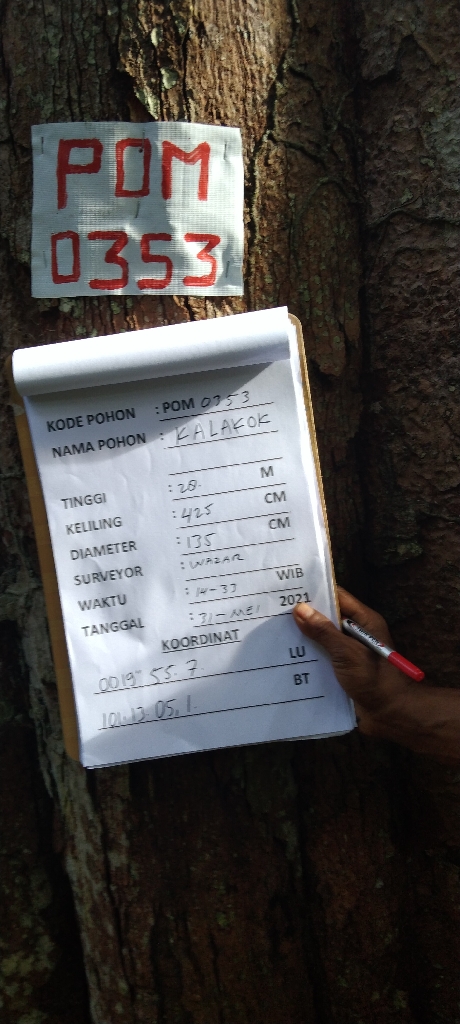 POM
0353
KODE POHON : POM 0353
NAMA POHON : KALAKOK
TINGGI : 20. M
KELILING : 425 CM
DIAMETER : 135 CM
SURVEYOR : WAZAR
WAKTU : 14-33 WIB
TANGGAL : 31-MEI 2021
KOORDINAT
0019" 55.7. LU
101.13.05.1. BT